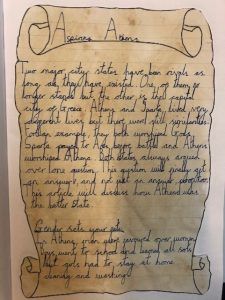 Aspiring Athens
Two major city states have been rivals as
long as they have existed. One of them no
longer stands but the other is the capital
city of Greece. Athens and Sparta lived very
different lives but there were still similarities.
For an example, they both worshiped Gods.
Sparta prayed to Ares before battle and Athens
worshiped Athena. Both states always argued
over one question. This question will finally get
an answer and not just an answer
This article will discuss how Athens was
the better state.
Gender sets your
In Athens, men were favoured over women.
Boys went to school and learned all sorts
but girls had to stay at home
cleaning and washing.